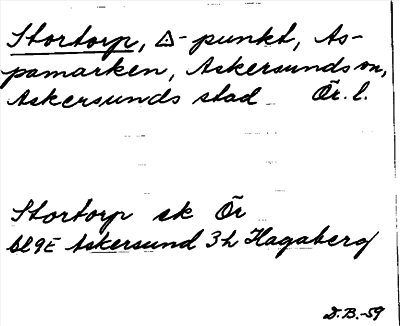 Stortorp, △-punkt, As-
pamarken, Askersunds sn,
Askersunds stad Ör. l.
Stortorp ek Ör
Bl 9E Askersund 3h Hagaberg
D.B.-59